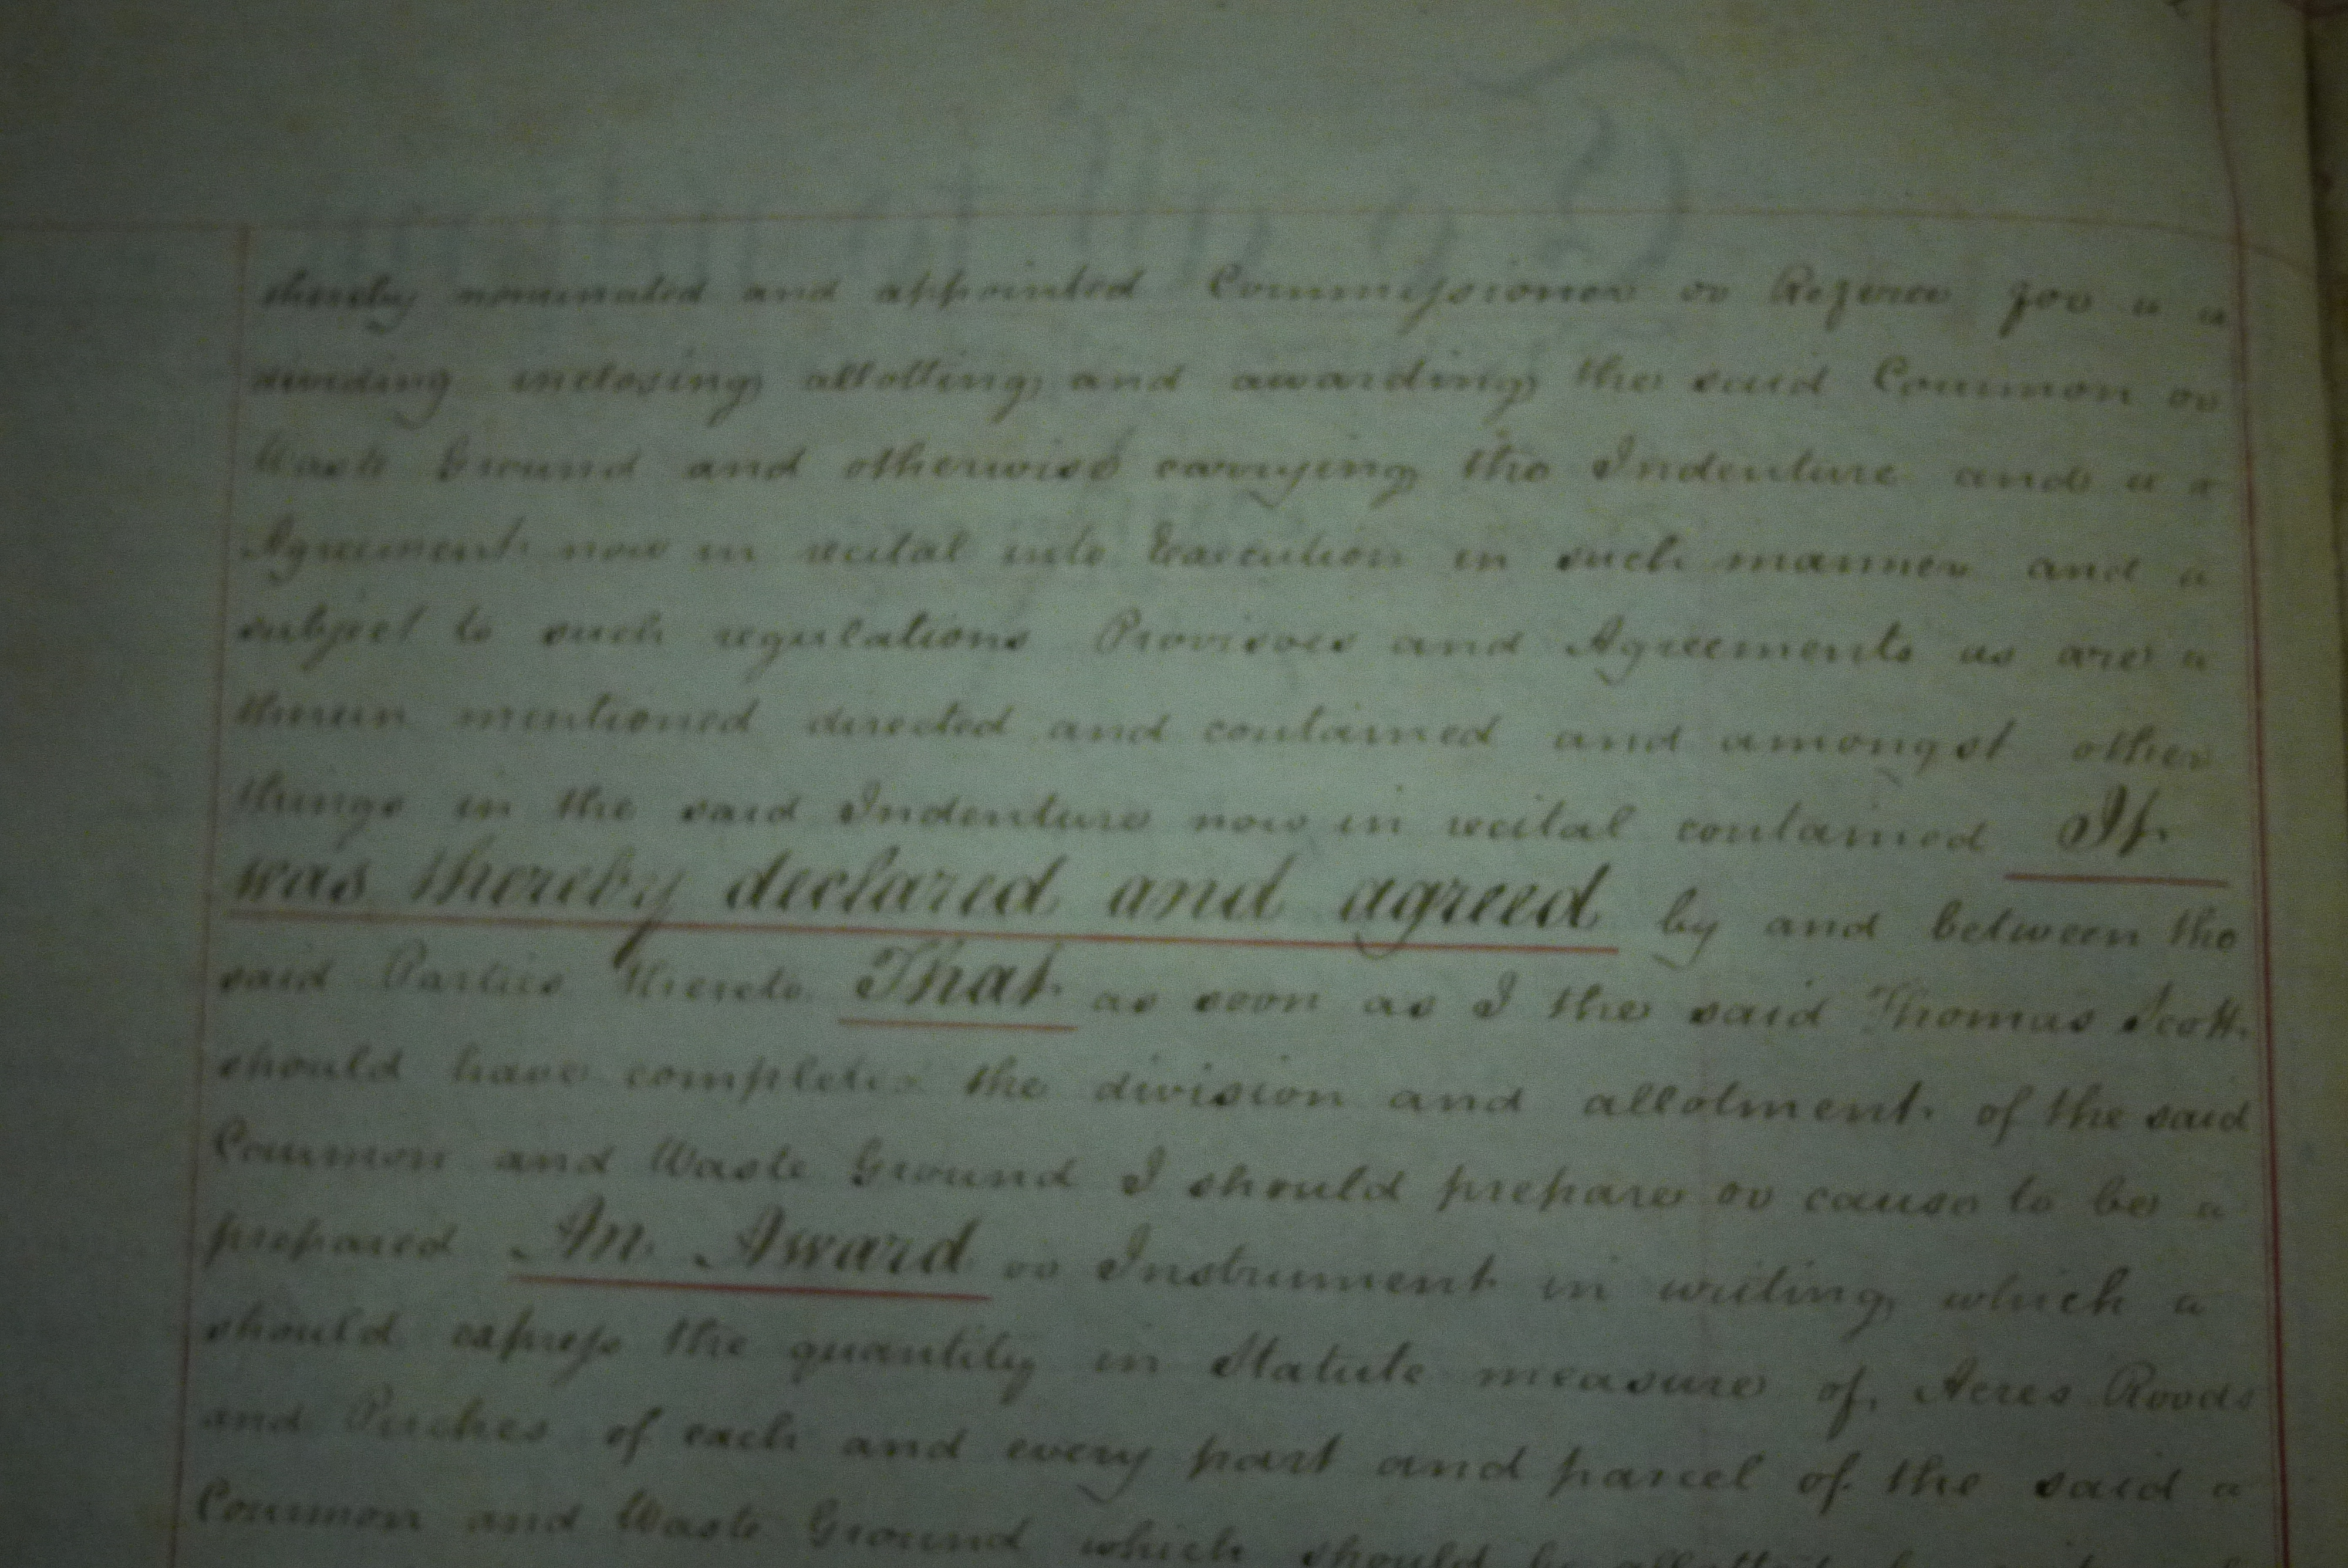 thereby nominated and appointed Commissioner or Referee for
dividing inclosing allotting and awarding the said Common or
Waste Ground and otherwise carrying the Indenture and
Agreement now in recital into Execution in such manner and
subject to such regulations Provisoes and Agreements as are
therein mentioned directed and contained and amongst other
things in the said Indenture now in recital contained It
was thereby declared and agreed by and between the
said Parties thereto That as soon as I the said Thomas Scott
should have completed the division and allotment of the said
Common and Waste Ground I should prepare or cause to be
prepared An Award or Instrument in writing which
should express the quantity in Statute measure of Acres Roods
and Perches of each and every part and parcel of the said
Common and Waste Ground which should be allotted